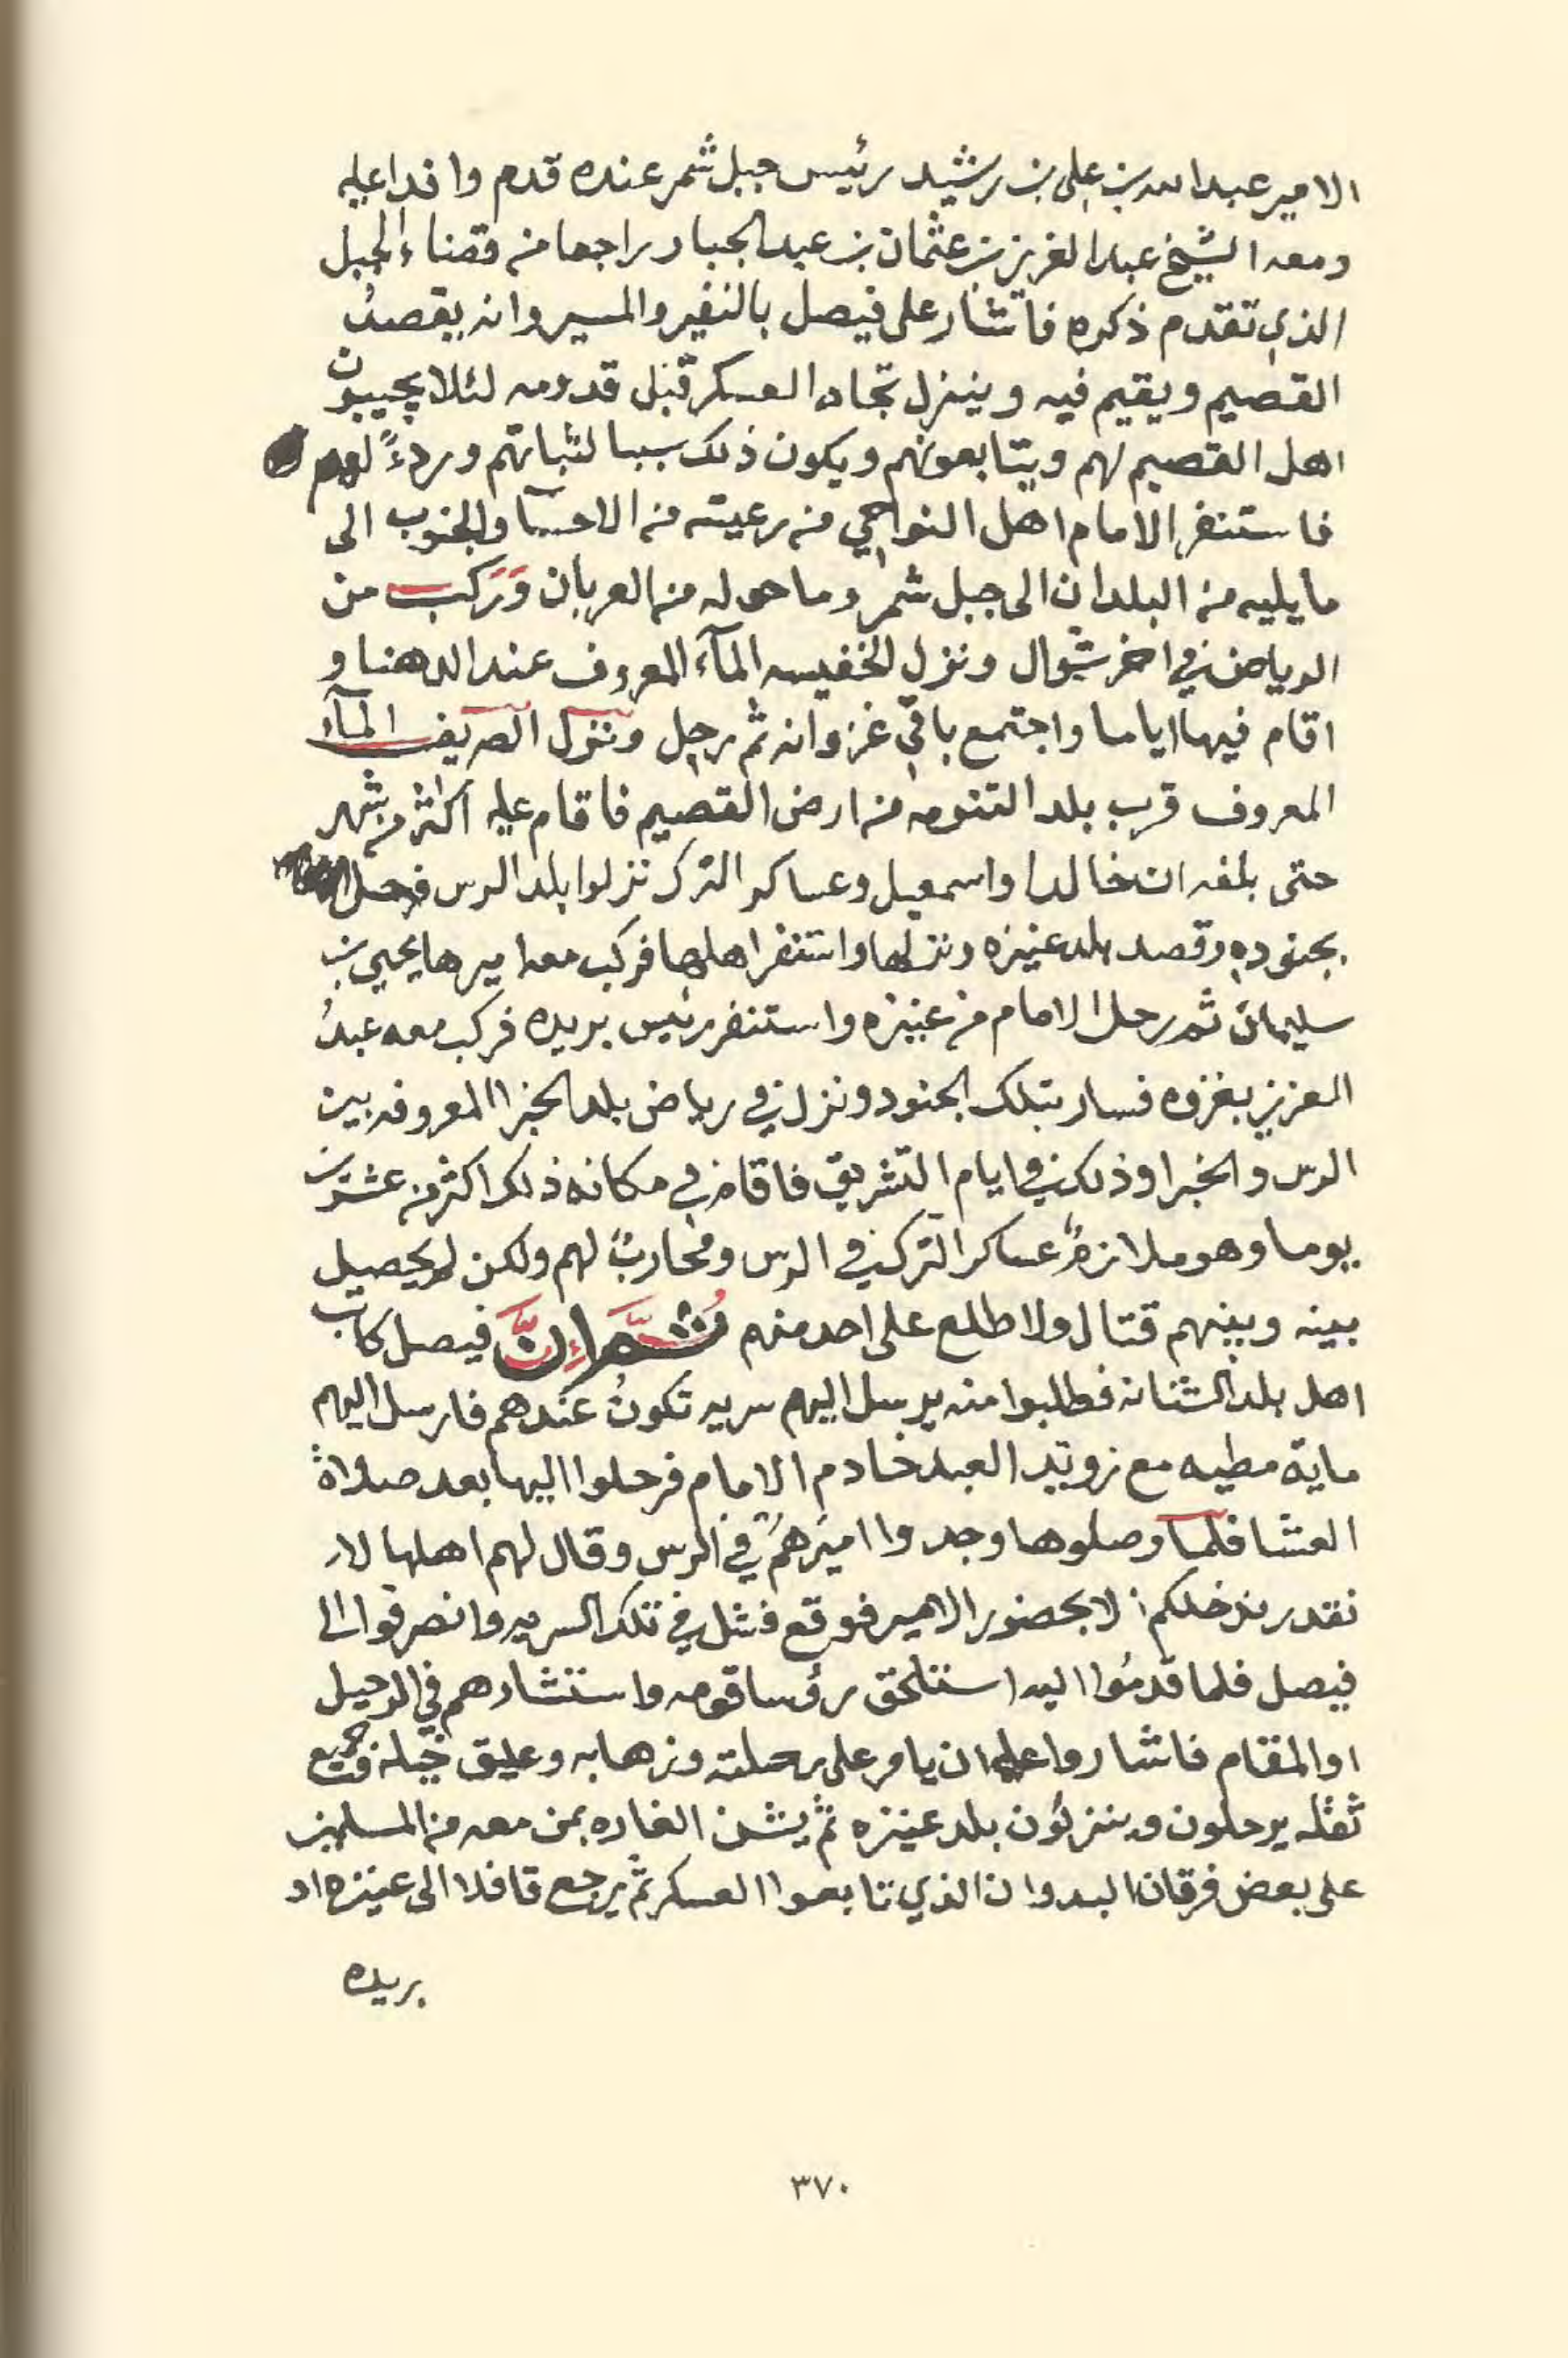 الامير عبدالله بن علي بن رشيد رئيس جبل شمر عنده قدم وافدا عليه
ومعه الشيخ عبدالعزيز بن عثمان بن عبدالجبار راجعا من قضاء الجبل
الذي تقدم ذكره فاشار على فيصل بالنفير والمسير وانه يقصدُ
القصيم ويقيم فيه وينزل تجاه العسكر قبل قدومه لئلا يجيبون
اهل القصيم لهم ويتابعونهم ويكون ذلك سببا لثباتهم وردءً لهم
فاستنفر الامام اهل النواحي من رعيته من الاحسآ والجنوب الى
ما يليه من البلدان الى جبل شمر وما حوله من العربان وَرَكب من
الرياض في اخر شوال ونزل الخفيسه المآء المعروف عند الدهنا و
اقام فيها اياما واجتمع باقي غزوانه ثم رحل ونزل الصريف المآء
المعروف قرب بلد التنومه من ارض القصيم فاقام عليه اكثر من شهر
حتى بلغه ان خالدا واسمعيل وعساكر الترك نزلوا بلد الرس فرحل
بجنوده وقصد بلد عنيزه ونزلها واستنفر اهلها فركب معه اميرها يحيى بن
سليمان ثم رحل الامام من عنيزه واستنفر رئيس بريده فركب معه عبدُ
العزيز بغزوه فسار بتلك الجنود ونزل في رياض بلد الخبرا المعروفه بين
الرس والخبرا وذلك في ايام التشريق فاقام في مكانه ذلك اكثر من عشرين
يوما وهو ملازمٌ عساكر الترك في الرس ومحاربٌ لهم ولكن لم يحصل
بينه وبينهم قتال ولا طلع على احد منهم ثُمَّ اِنَّ فيصل كاتب
اهل بلد الشنانه فطلبوا منه يرسل اليهم سريه تكونُ عندهم فارسل اليهم
ماية مطيه مع زويّد العبد خادم الامام فرحلوا اليها بعد صلاة
العشا فلما وصلوها وجدوا اميرهم في الرس وقال لهم اهلها لا
نقدر ندخلكم الا بحضور الامير فوقع فشل في تلك السريه وانصرفوا الى
فيصل فلما قدمُوا اليه استلحق رؤسا قومه واستشارهم في الرحيل
او المقام فاشاروا عليه ان يامر على رحلته وزهابه وعليق خيله وجميع
ثقله يرحلون وينزلون بلد عنيزه ثم يشن الغاره بمن معه من المسلمين
على بعض فرقان البدوان الذي تابعوا العسكر ثم يرجع قافلا الى عنيزه او
بريده
٣٧٠